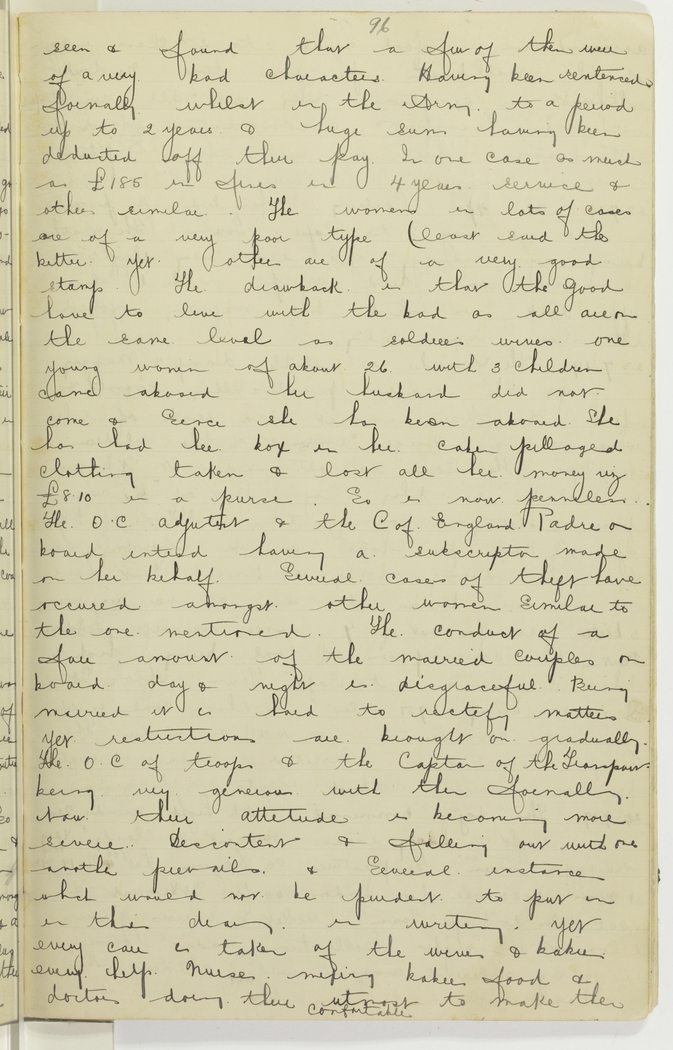 96
seen & found that a few of them were
of a very bad character. Having been sentenced
formally whilst in the Army. to a period
up to 2 years & huge sums having been
deducted off their pay. In one case as much
as £185 in fines in 4 years service &
others similar. The women in lots of cases
are of a very poor type (least said the
better yet others are of a very good
stamp. The drawback is that the Good
have to live with the bad as all are on
the same level as soldiers wives. one
young women of about 26 with 3 Children
came aboard her husband did not
come & Since she has been aboard She
has had her box in her cabin pillaged
clothing taken & lost all her money viz
£8.10 in a purse. So is now penniless.
The O.C adjutant & the C of England Padre on
board intend having a subscription made
on her behalf. Several cases of theft have
occured amongst other women Similar to
the one mentioned. The conduct of a
fair amount of the married couples on
board day & night is disgraceful. Being
married it is hard to rectify matters
yet restrictions are brought on gradually.
The O.C of troops & the Captain of the Transport
being very generous with them formally.
Now their attitude is becoming more
severe. Descontent & falling out with one
another prevails. & Several instances
which would not be prudent to put in
in this diary in writing. yet
every care is taken of the wives & babies
every help. Nurses mixing babies food &
doctors doing their utmost to make them
comfortable